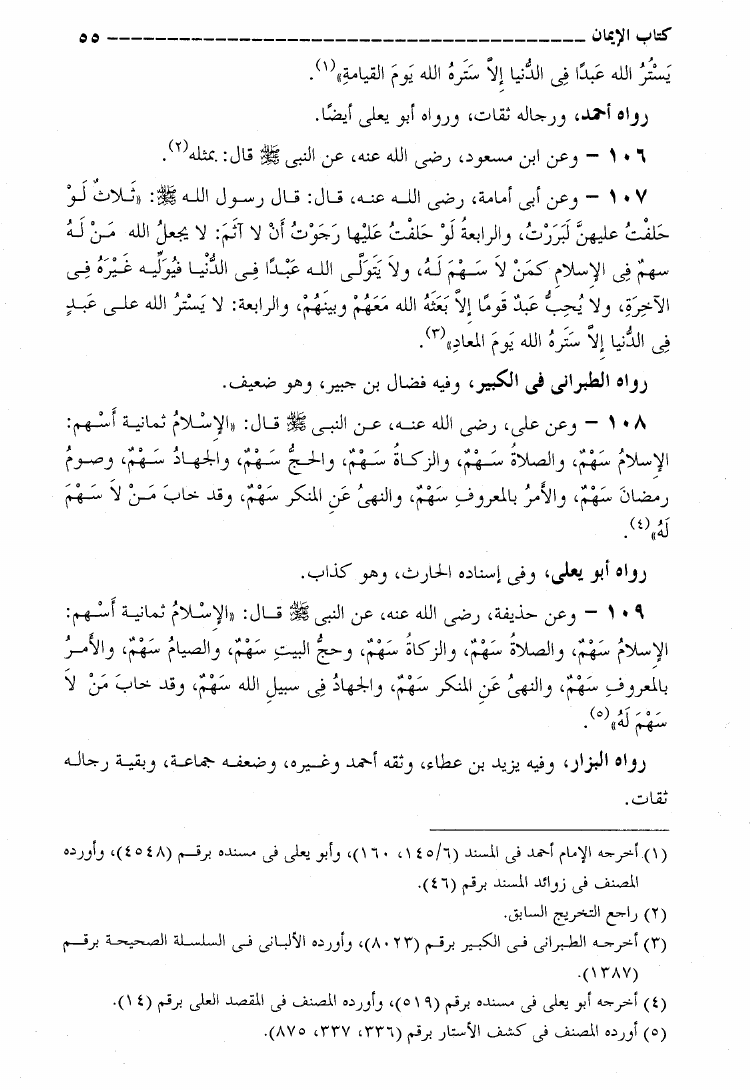 كتاب الإيمان ــــــــــــــــــــــــــــــــــــــــــــــــ ٥٥
يَسْتُرُ الله عَبدًا فِى الدُّنيا إلاَّ سَتَرهُ الله يَومَ القيامةِ»(١).
رواه أحمد، ورجاله ثقات، ورواه أبو يعلى أيضًا.
١٠٦ – وعن ابن مسعود، رضى الله عنه، عن النبى ﷺ قال: بمثله(٢).
١٠٧ – وعن أبى أمامة، رضى اللـه عنـه، قال: قال رسول اللـه ﷺ: «ثَـلاثٌ لَـوْ
حَلفْتُ عليهنَّ لَبَرَرْتُ، والرابعةُ لَوْ حَلفْتُ عَليْها رَجَوْتُ أَنْ لا آثَمَ: لا يجعلُ الله مَـنْ لَـهُ
سهمٌ فِى الإسلامِ كمَنْ لاَ سَـهْمَ لَـهُ، ولاَ يَتَولَّـى اللـه عَبْـدًا فِـى الدُّنْيـا فيُولِّيـه غَـيْرَهُ فِـى
الآخِرَةِ، ولا يُحِبُّ عَبدٌ قومًا إلاَّ بَعَثَهُ الله مَعَهُمْ وبينَهُمْ، والرابعة: لا يَسْترُ الله علـى عَبـدٍ
فِى الدُّنيا إلاَّ سَتَرهُ الله يَومَ المعادِ»(٣).
رواه الطبرانى فى الكبير، وفيه فضال بن جبير، وهو ضعيف.
١٠٨ – وعن على، رضى الله عنـه، عـن النبـى ﷺ قـال: «الإسْـلامُ ثمانيـة أسْـهم:
الإسلامُ سَهْمٌ، والصلاةُ سَـهْمٌ، والزكـاةُ سَـهْمٌ، والحـجُّ سَـهْمٌ، والجهـادُ سَـهْمٌ، وصـومُ
رمضانَ سَهْمٌ، والأمرُ بالمعروفِ سَهْمٌ، والنهىُ عَنِ المنكرِ سَهْمٌ، وقد خابَ مَـنْ لاَ سَـهْمَ
لَهُ»(٤).
رواه أبو يعلى، وفى إسناده الحارث، وهو كذاب.
١٠٩ – وعن حذيفة، رضى الله عنه، عن النبى ﷺ قـال: «الإسْـلامُ ثمانيـة أسْـهم:
الإسلامُ سَهْمٌ، والصلاةُ سَهْمٌ، والزكاةُ سَهْمٌ، وحجُّ البيتِ سَهْمٌ، والصيامُ سَهْمٌ، والأمـرُ
بالمعروفِ سَهْمٌ، والنهىُ عَنِ المنكرِ سَهْمٌ، والجهادُ فِى سبيلِ الله سَهْمٌ، وقد خابَ مَنْ لاَ
سَهْمَ لَهُ»(٥).
رواه البزار، وفيه يزيد بن عطاء، وثقه أحمد وغـيره، وضعفـه جماعـة، وبقيـة رجالـه
ثقات.
(١) أخرجه الإمام أحمد فى المسند (١٤٥/٦، ١٦٠)، وأبو يعلى فى مسنده برقـم (٤٥٤٨)، وأورده
المصنف فى زوائد المسند برقم (٤٦).
(٢) راجع التخريج السابق.
(٣) أخرجـه الطبرانى فـى الكبير برقم (٨٠٢٣)، وأورده الألبانى فـى السلسلة الصحيحة برقـم
(١٣٨٧).
(٤) أخرجه أبو يعلى فى مسنده برقم (٥١٩)، وأورده المصنف فى المقصد العلى برقم (١٤).
(٥) أورده المصنف فى كشف الأستار برقم (٣٣٦، ٣٣٧، ٨٧٥).